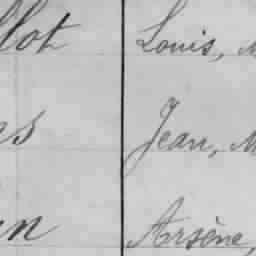 llot Louis, M
ns Jean, M
nn Arsène,